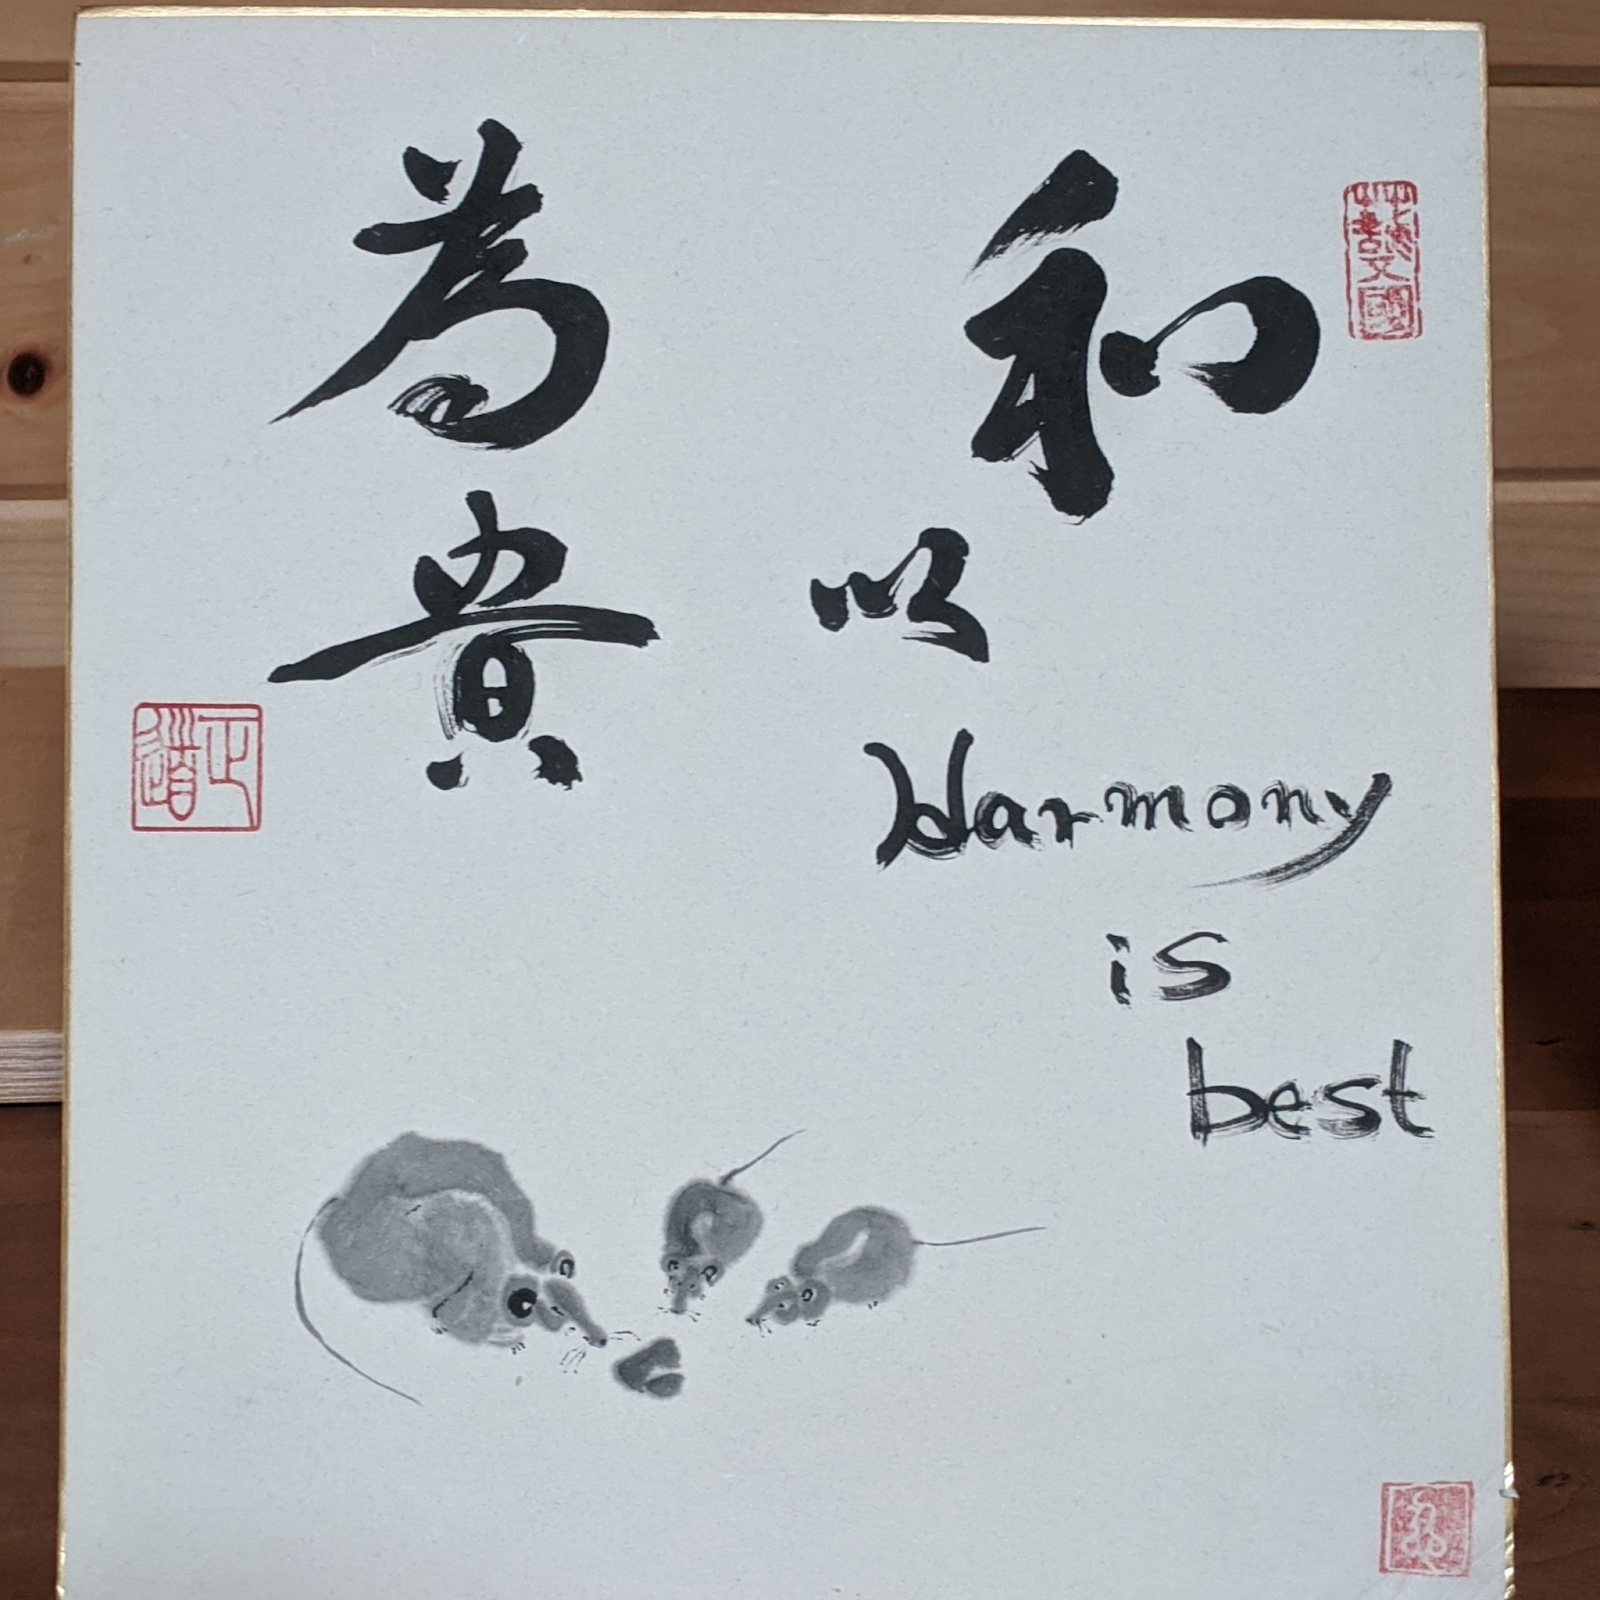 和
以
為
貴
Harmony
is
best
正道